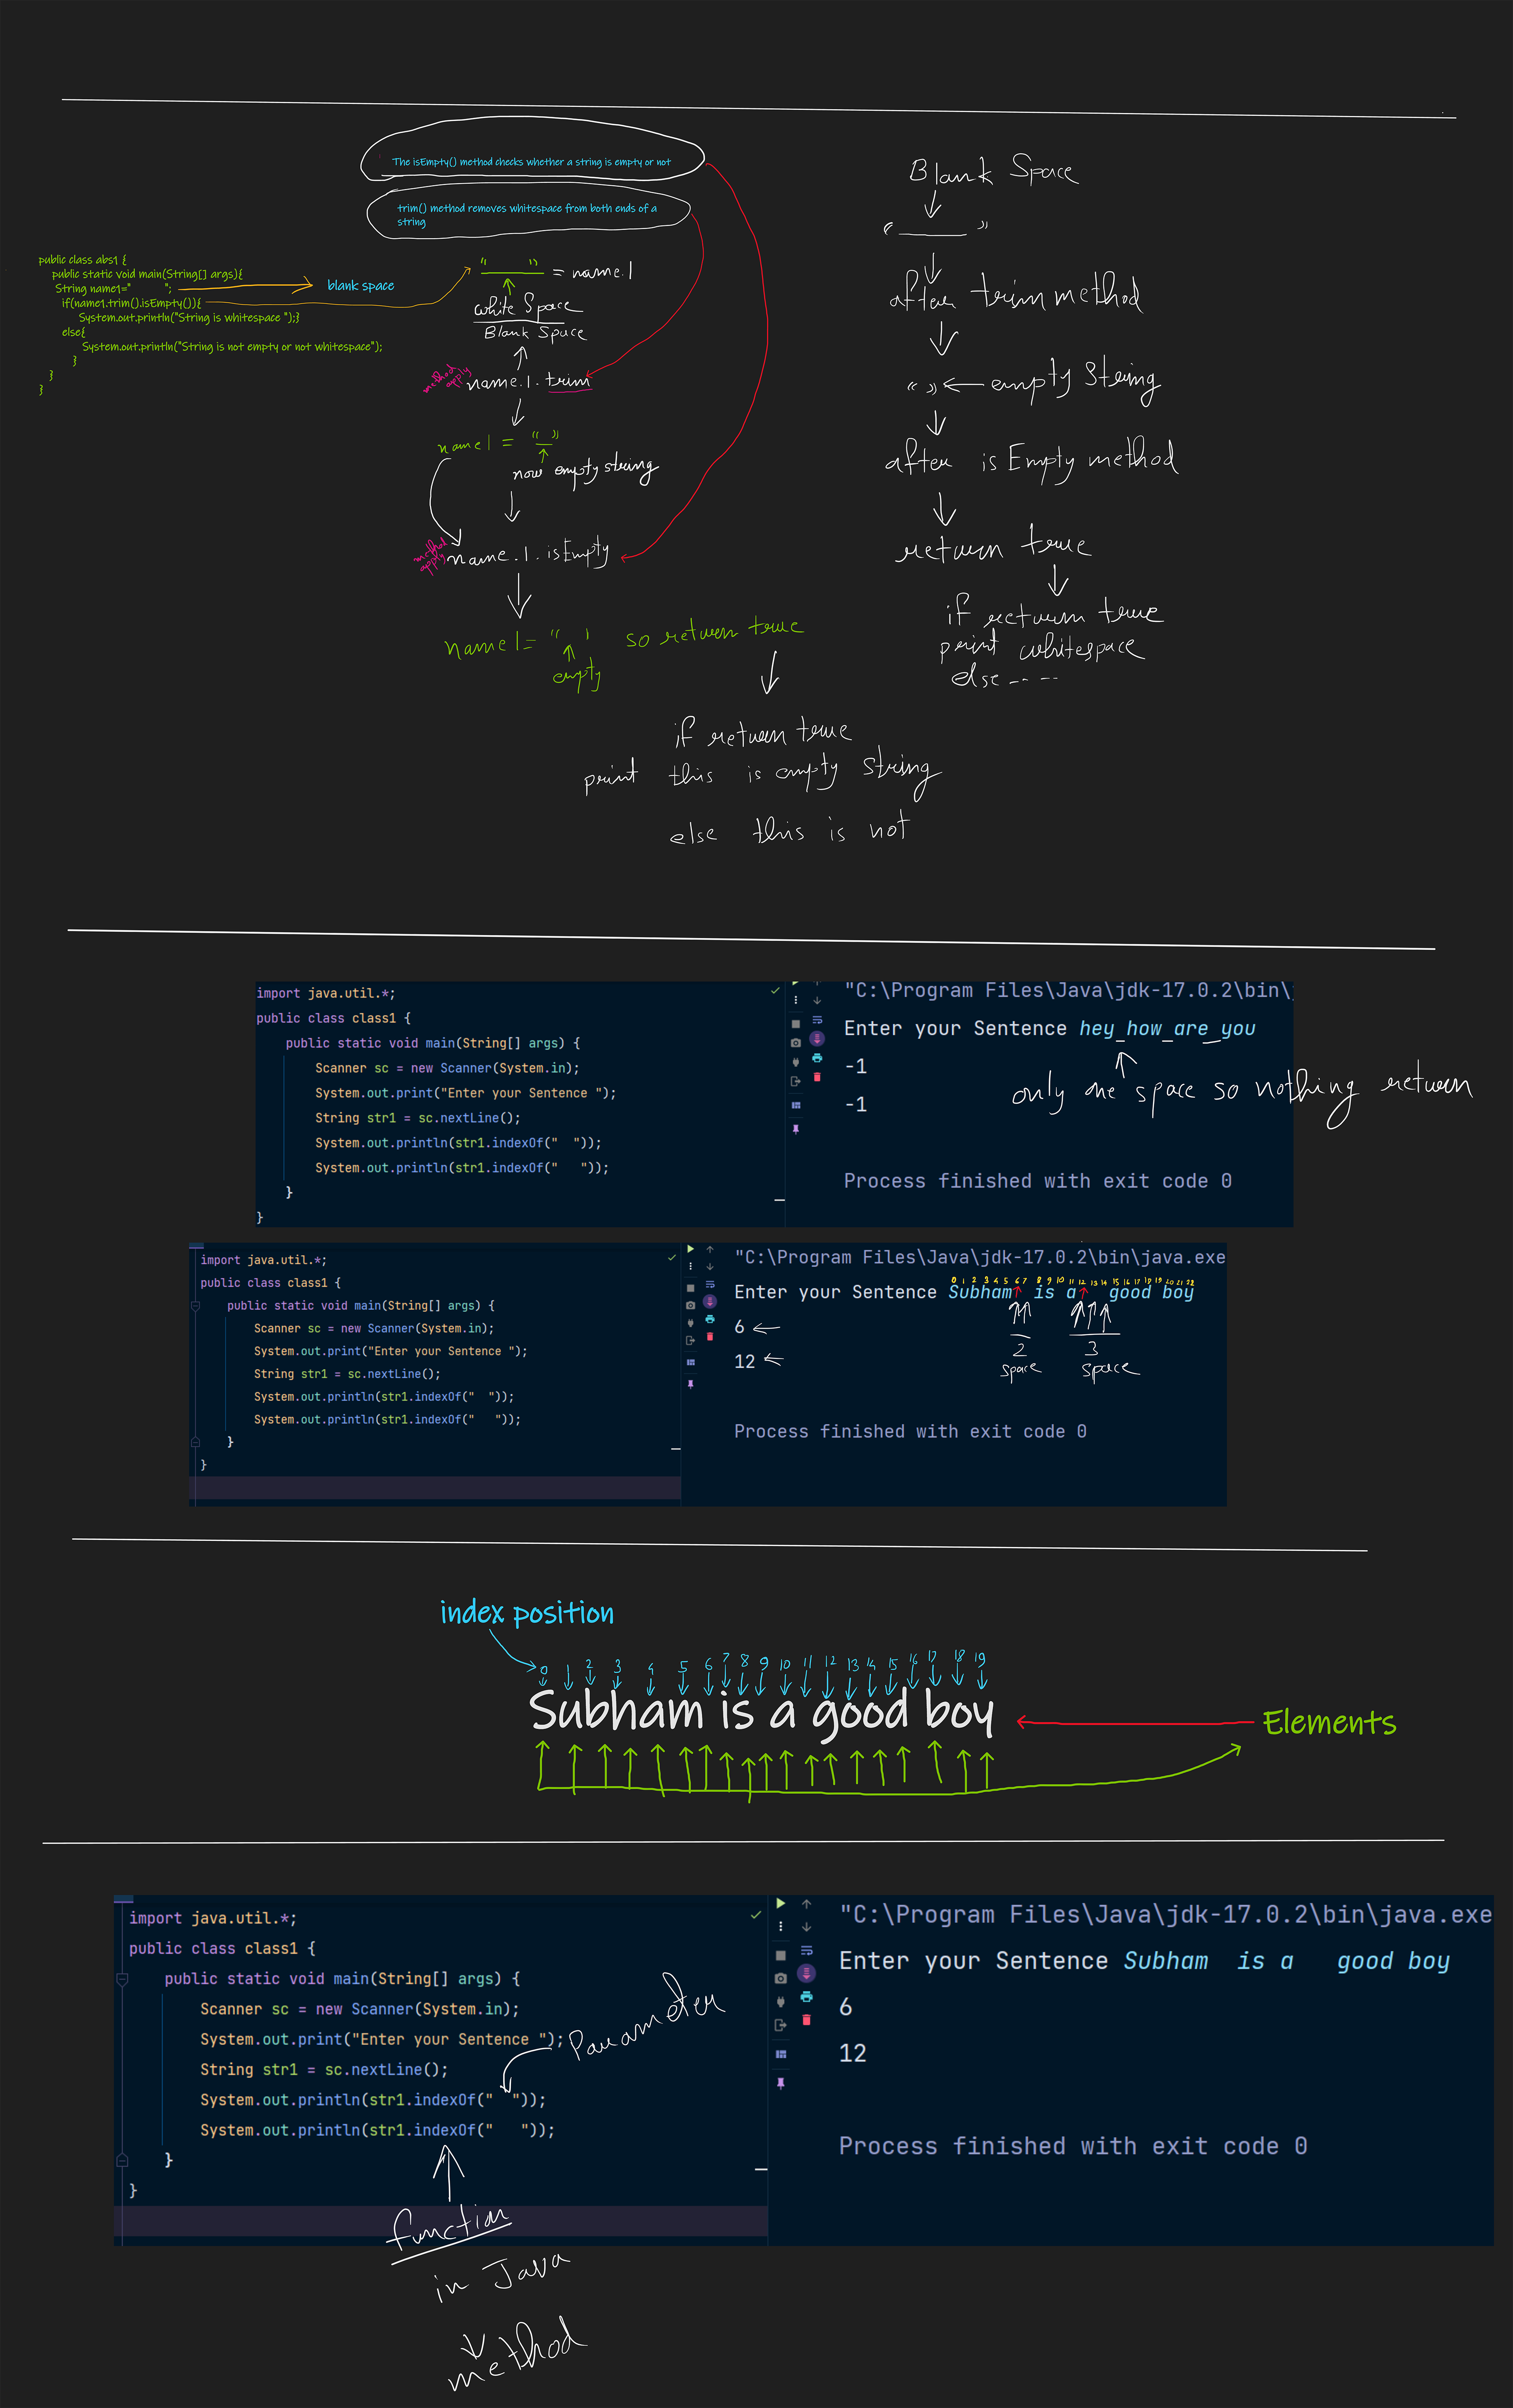 The isEmpty() method checks whether a string is empty or not
trim() method removes whitespace from both ends of a
string
public class abs1 {
public static void main(String[] args){
String name1="          ";
if(name1.trim().isEmpty()){
System.out.println("String is whitespace ");}
else{
System.out.println("String is not empty or not whitespace");
}
}
}
blank space
"        " = name.1
white Space
Blank Space
method apply
name.1.trim
name1 = "  "
now empty string
method apply
name.1.isEmpty
name1= "   ' so return true
empty
if return true
print this is empty string
else this is not
Blank Space
"        "
after trim method
" " empty String
after isEmpty method
return true
if return true
print whitespace
else -- --
import java.util.*;
public class class1 {
public static void main(String[] args) {
Scanner sc = new Scanner(System.in);
System.out.print("Enter your Sentence ");
String str1 = sc.nextLine();
System.out.println(str1.indexOf("  "));
System.out.println(str1.indexOf("   "));
}
}
"C:\Program Files\Java\jdk-17.0.2\bin\j
Enter your Sentence hey how are you
-1
-1
only one space so nothing return
Process finished with exit code 0
import java.util.*;
public class class1 {
public static void main(String[] args) {
Scanner sc = new Scanner(System.in);
System.out.print("Enter your Sentence ");
String str1 = sc.nextLine();
System.out.println(str1.indexOf("  "));
System.out.println(str1.indexOf("   "));
}
}
"C:\Program Files\Java\jdk-17.0.2\bin\java.exe
0 1 2 3 4 5 6 7 8 9 10 11 12 13 14 15 16 17 18 19 20 21 22
Enter your Sentence Subham  is a   good boy
6
12
2
space
3
space
Process finished with exit code 0
index position
0 1 2 3 4 5 6 7 8 9 10 11 12 13 14 15 16 17 18 19
Subham is a good boy
Elements
import java.util.*;
public class class1 {
public static void main(String[] args) {
Scanner sc = new Scanner(System.in);
System.out.print("Enter your Sentence ");
String str1 = sc.nextLine();
System.out.println(str1.indexOf("  "));
System.out.println(str1.indexOf("   "));
}
}
Parameter
function
in Java
method
"C:\Program Files\Java\jdk-17.0.2\bin\java.exe
Enter your Sentence Subham  is a   good boy
6
12
Process finished with exit code 0